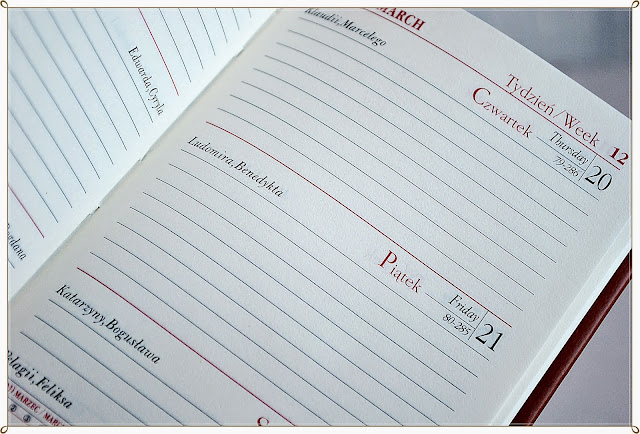 Edwarda,Cyryla
Bogdana
MARCH
Klaudii,Marcelego
Tydzień/Week 12
Czwartek
Thursday
79-286
20
Ludomira,Benedykta
Piątek
Friday
80-285
21
Katarzyny,Bogusława
Pelagii,Feliksa
MARZEC